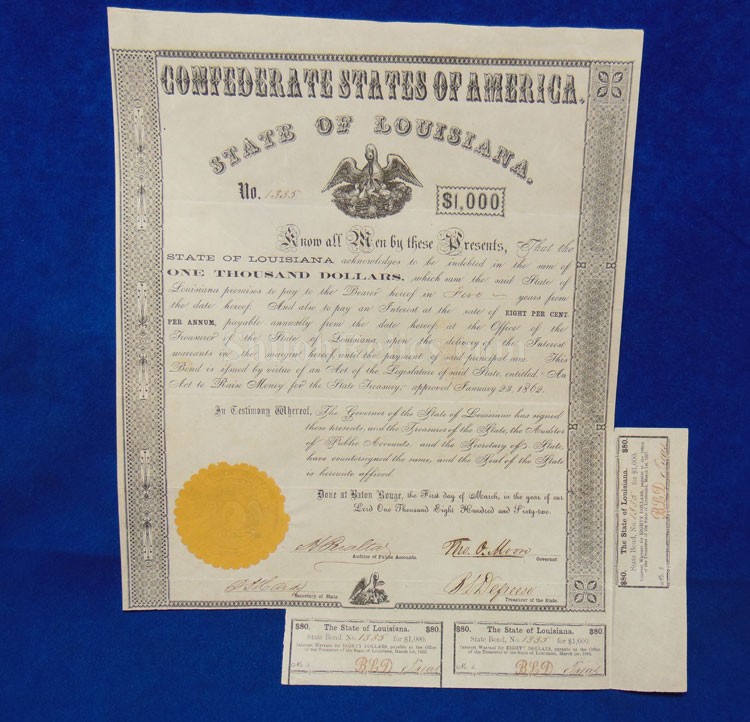 CONFEDERATE STATES OF AMERICA.
STATE OF LOUISIANA.
No. 1385
$1,000
Know all Men by these Presents, That the
STATE OF LOUISIANA acknowledges to be indebted in the sum of
ONE THOUSAND DOLLARS, which sum the said State of
Louisiana promises to pay to the Bearer hereof in Five years from
the date hereof. And also to pay an Interest at the rate of EIGHT PER CENT.
PER ANNUM, payable annually from the date hereof at the Office of the
Treasurer of the State of Louisiana, upon the delivery of the Interest
warrants in the margin hereof, until the payment of said principal sum. This
Bond is issued by virtue of an Act of the Legislature of said State, entitled "An
Act to Raise Money for the State Treasury," approved January 23, 1862.
In Testimony Whereof, The Governor of the State of Louisiana has signed
these presents, and the Treasurer of the State, the Auditor
of Public Accounts, and the Secretary of State,
have countersigned the same, and the Seal of the State
is hereunto affixed.
Done at Baton Rouge, the First day of March, in the year of our
Lord One Thousand Eight Hundred and Sixty-two.
Tho. O. Moore
Auditor of Public Accounts.
Governor.
Secretary of State
Treasurer of the State.
$80. The State of Louisiana. $80.
State Bond, No. 1385 for $1,000.
Interest Warrant for EIGHTY DOLLARS, payable at the Office
of the Treasurer of the State of Louisiana, March 1st,
No.
BLD
$80. The State of Louisiana. $80.
State Bond, No. 1385 for $1,000.
Interest Warrant for EIGHTY DOLLARS, payable at the Office
of the Treasurer of the State of Louisiana, March 1st,
No.
BLD
$80. The State of Louisiana. $80.
State Bond, No. 1385 for $1,000.
Interest Warrant for EIGHTY DOLLARS, payable at the Office
of the Treasurer of the State of Louisiana, March 1st,
No.
BLD